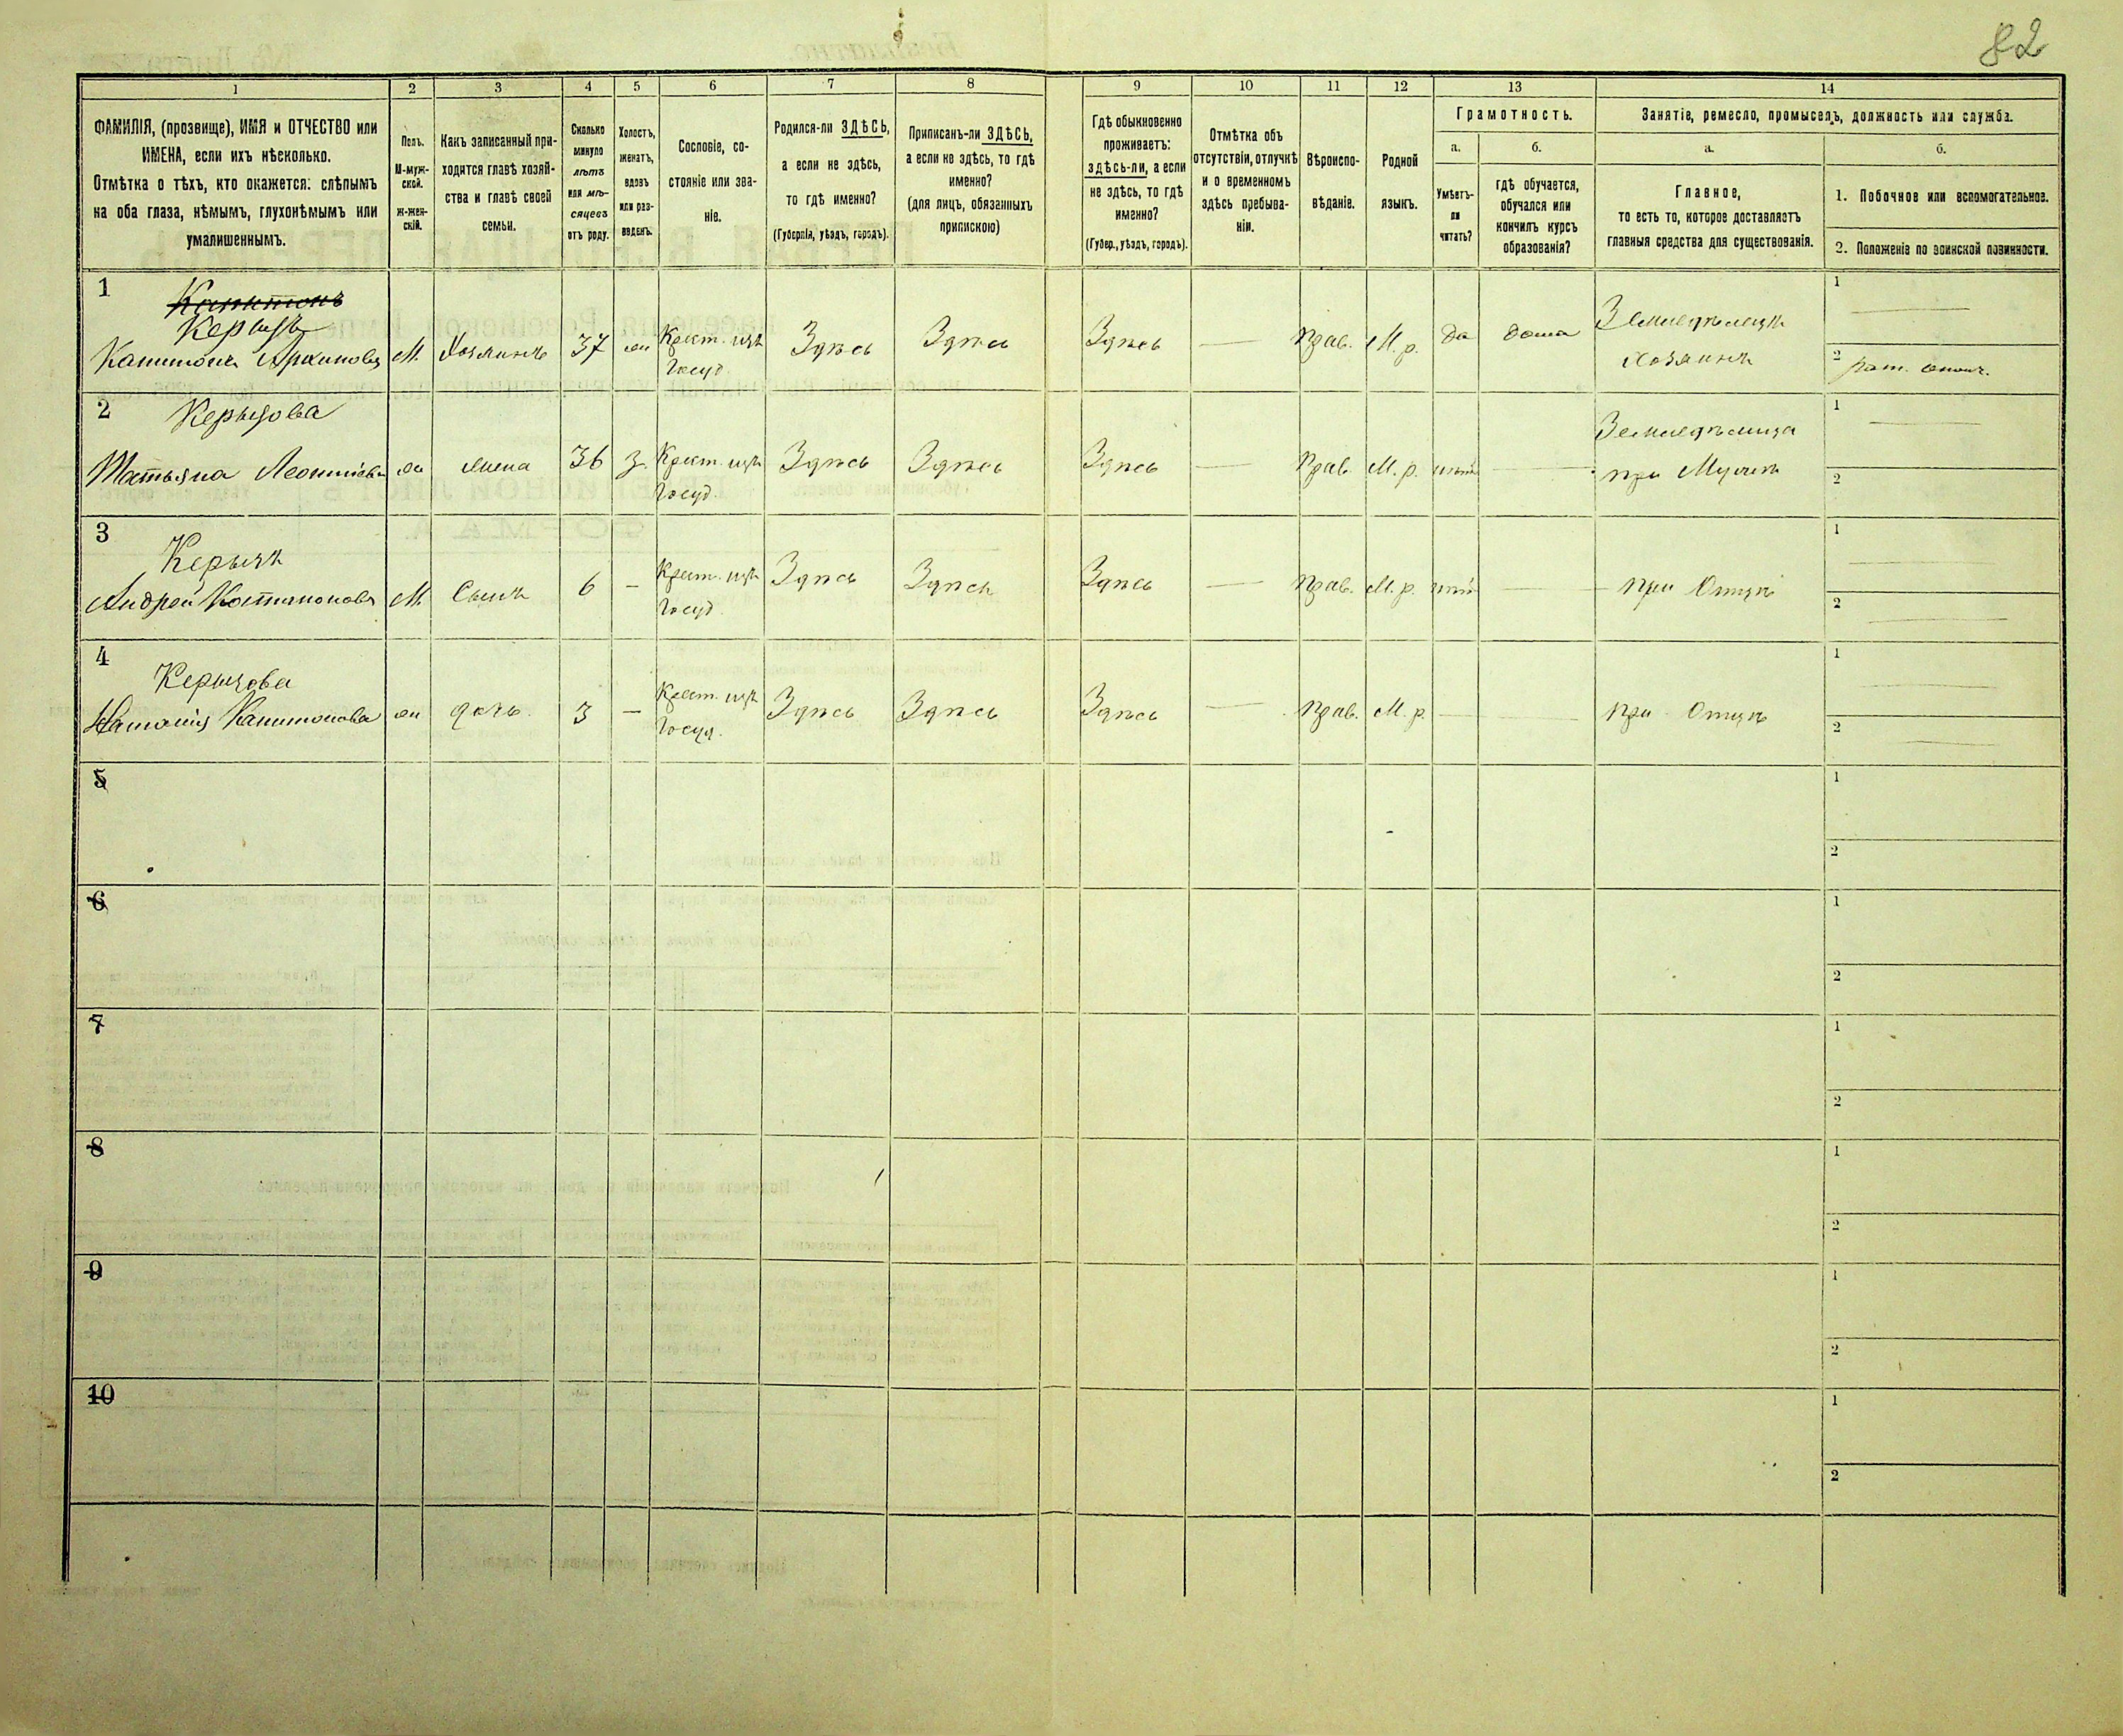 82
1 2 3 4 5 6 7 8 9 10 11 12 13 14
ФАМИЛІЯ, (прозвище), ИМЯ и ОТЧЕСТВО или
ИМЕНА, если ихъ нѣсколько.
Отмѣтка о тѣхъ, кто окажется: слѣпымъ
на оба глаза, нѣмымъ, глухонѣмымъ или
умалишеннымъ.
Полъ.
М-муж-
ской.
Ж-жен-
скій.
Какъ записанный при-
ходится главѣ хозяй-
ства и главѣ своей
семьи.
Сколько
минуло
лѣтъ
или мѣ-
сяцевъ
отъ роду.
Холостъ,
женатъ,
вдовъ
или раз-
веденъ.
Сословіе, со-
стояніе или зва-
ніе.
Родился-ли ЗДѢСЬ,
а если не здѣсь,
то гдѣ именно?
(Губернія, уѣздъ, городъ).
Приписанъ-ли ЗДѢСЬ,
а если не здѣсь, то гдѣ
именно?
(для лицъ, обязанныхъ
припискою)
Гдѣ обыкновенно
проживаетъ:
здѣсь-ли, а если
не здѣсь, то гдѣ
именно?
(Губер., уѣздъ, городъ).
Отмѣтка объ
отсутствіи, отлучкѣ
и о временномъ
здѣсь пребыва-
ніи.
Вѣроиспо-
вѣданіе.
Родной
языкъ.
Грамотность.
а.
Умѣетъ-
ли
читать?
б.
гдѣ обучается,
обучался или
кончилъ курсъ
образованія?
Занятіе, ремесло, промыселъ, должность или служба.
а.
Главное,
то есть то, которое доставляетъ
главныя средства для существованія.
б.
1. Побочное или вспомогательное.
2. Положеніе по воинской повинности.
1
Капитонъ
Керызъ
Капитонъ Архиповъ М. Хозяинъ 37 ж Крест. изъ Госуд. Здѣсь Здѣсь Здѣсь — Прав. М. р. да дома Земледѣлецъ хозяинъ
1 —
2 рат. ополч.
2
Керызова
Татьяна Леонтіева ж жена 36 з. Крест. изъ Госуд. Здѣсь Здѣсь Здѣсь — Прав. М. р. нѣтъ — Земледѣлица при Мужѣ
1 —
2
3
Керызъ
Андрей Капитоновъ М. Сынъ 6 — Крест. изъ Госуд. Здѣсь Здѣсь Здѣсь — Прав. М. р. нѣтъ — при Отцѣ
1 —
2 —
4
Керызова
Наталія Капитонова ж дочь. 3 — Крест. изъ Госуд. Здѣсь Здѣсь Здѣсь — Прав. М. р. — — при Отцѣ
1 —
2 —
5
1
2
6
1
2
7
1
2
8
1
2
9
1
2
10
1
2